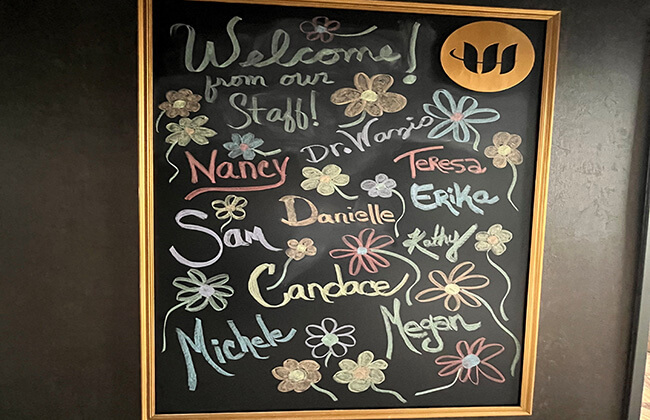 Welcome!
from our
Staff!
Dr. Wanzio
Nancy
Teresa
Erika
Danielle
Sam
Kathy
Candace
Michele
Megan